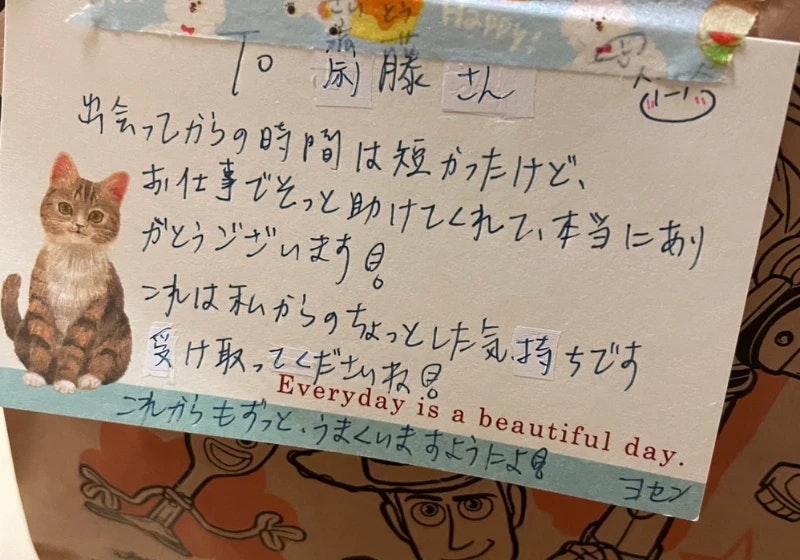 Happy!
さい とう
To 齋藤 さん
出会ってからの時間は短かったけど、
お仕事でそっと助けてくれて、本当にあり
がとうございます!
これは私からのちょっとした気持ちです
受け取ってくださいね!
Everyday is a beautiful day.
これからもずっと、うまくいきますようによ!
ヨセン